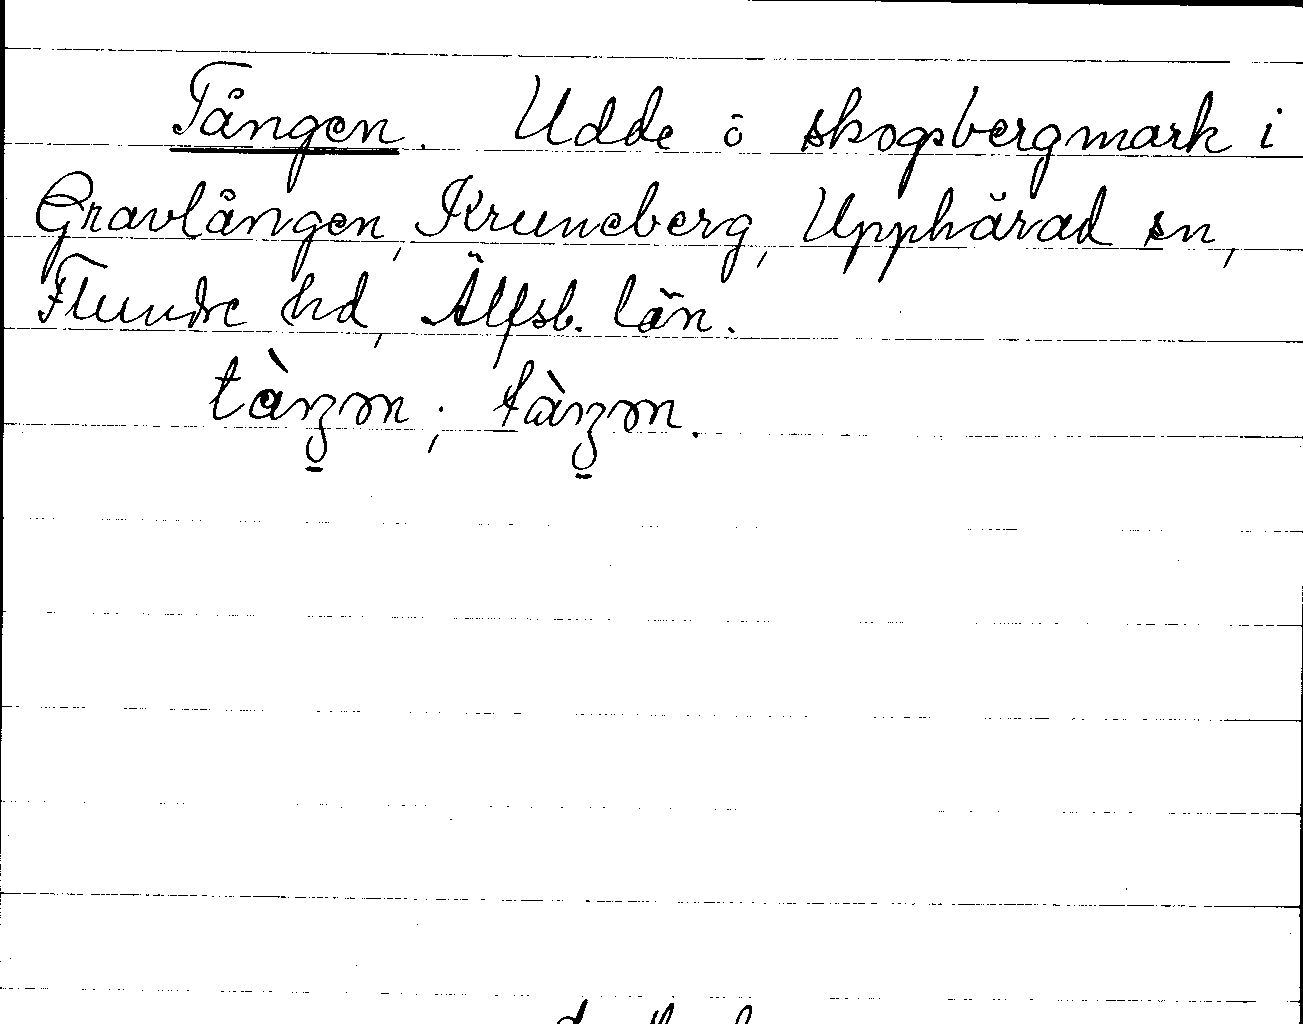 Tången. Udde ö skogsbergmark i
Gravlången, Kruneberg, Upphärad sn,
Flundre hd, Älfsb. län.